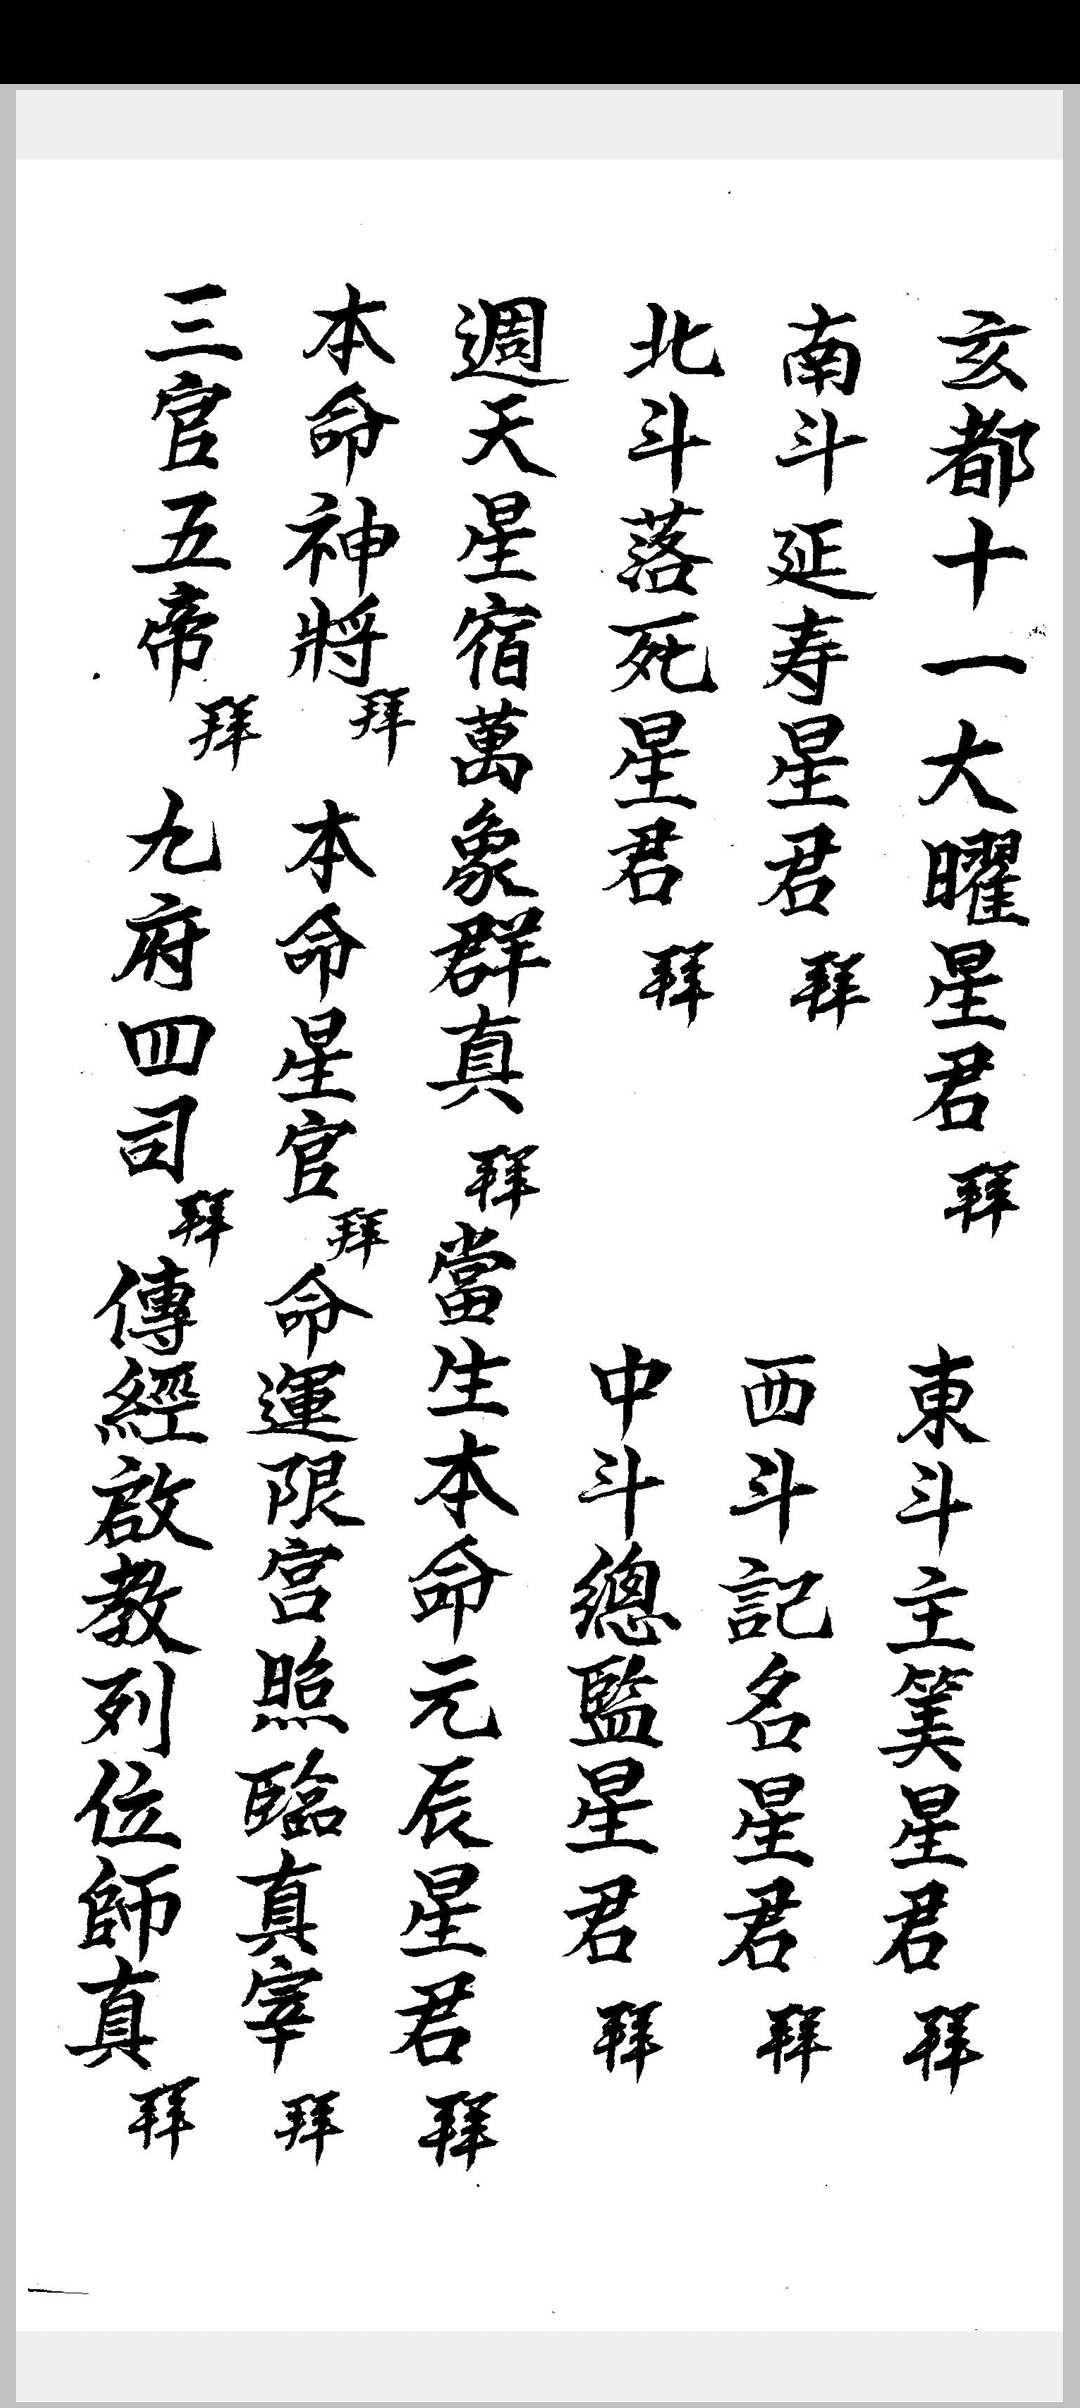 亥都十一大曜星君 拜 東斗主筭星君 拜
南斗延寿星君 拜 西斗記名星君 拜
北斗落死星君 拜 中斗總監星君 拜
週天星宿萬象群真 拜 當生本命元辰星君 拜
本命神將 拜 本命星官 拜 命運限宫照臨真宰 拜
三官五帝 拜 九府四司 拜 傳經啟教列位師真 拜